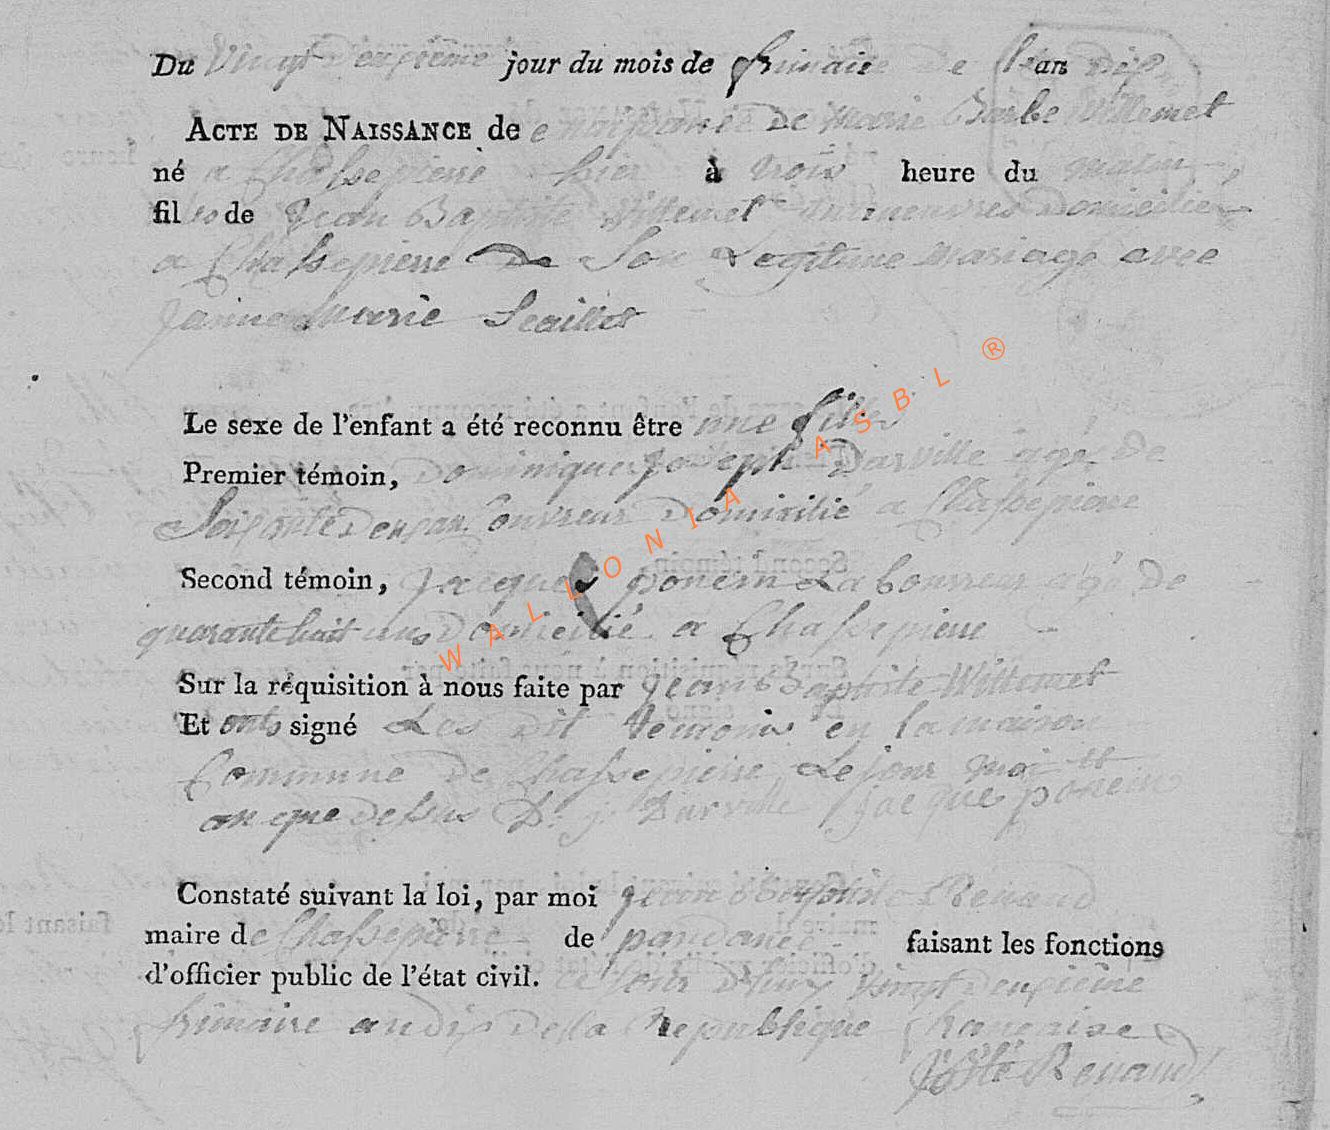 Du Vingt deuxieme jour du mois de frimaire de l'an dix
ACTE DE NAISSANCE de De Marie Barbe Willemet
né a Chassepierre hier à trois heure du matin
fil de Jean Baptiste Willemet domicilié
a Chassepierre De Son Legitime Mariage avec
Jannemarie Scaillet
Le sexe de l'enfant a été reconnu être une fille
Premier témoin, Dominique Joseph Darville agé De
Soixante Deux an ouvreur Domicilié a Chassepierre
Second témoin, Jacque ponein Laboureur agé De
quarante huit ans Domicilié a Chassepierre
WALLONIA ASBL ®
Sur la réquisition à nous faite par Jean Baptiste Willemet
Et onts signé Les dit temoins en la maison
Commune De Chassepierre Le jour moi et
an que dessus D. j. Darville Jacque ponein
Constaté suivant la loi, par moi Jean Baptiste Renaud
maire de Chassepierre de faisant les fonctions
d'officier public de l'état civil. ce jour D'huy Vingt deuxieme
frimaire an dix De la Republique francaise
JBte Renaud